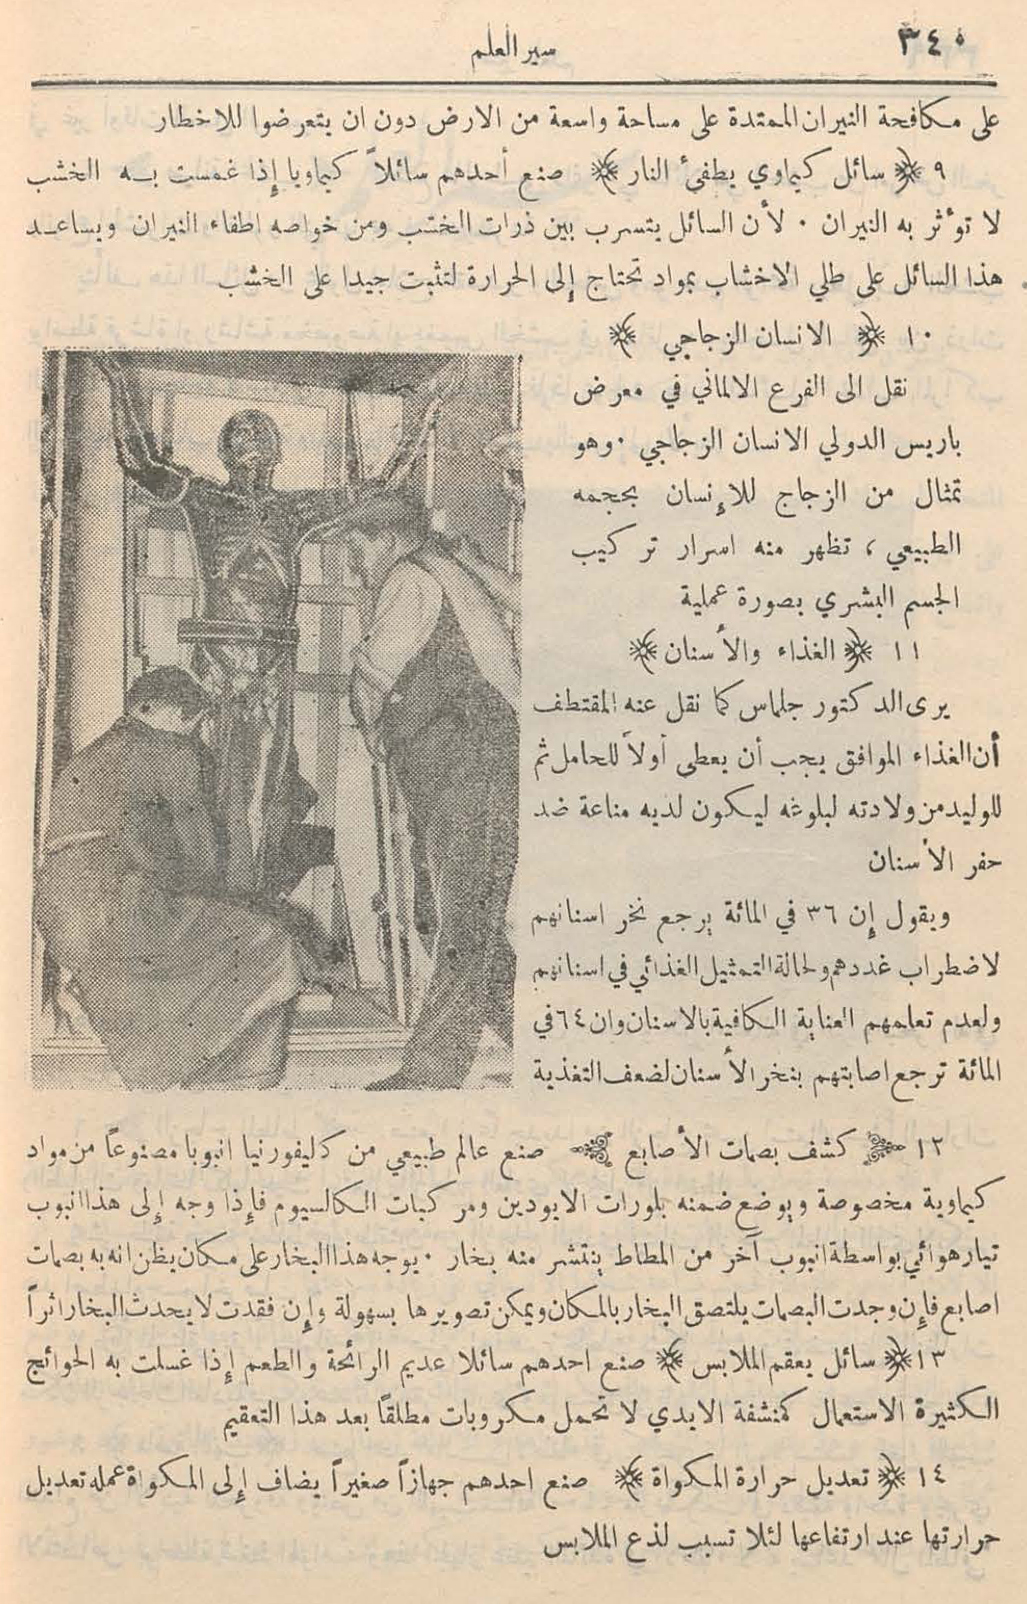 ٣٤٠
سير العلم
على مكافحة النيران الممتدة على مساحة واسعة من الارض دون ان يتعرضوا للاخطار
٩ ﴿ سائل كيماوي يطفئ النار ﴾ صنع أحدهم سائلاً كيماويا إذا غمست بـه الخشب
لا تؤثر به النيران ٠ لأن السائل يتسرب بين ذرات الخشب ومن خواصه اطفاء النيران ويساعـد
هذا السائل على طلي الاخشاب بمواد تحتاج إلى الحرارة لتثبت جيدا على الخشب
١٠ ﴿ الانسان الزجاجي ﴾
نقل الى الفرع الالماني في معرض
باريس الدولي الانسان الزجاجي ٠ وهو
تمثال من الزجاج للإنسان بحجمه
الطبيعي ، تظهر منه اسرار تركيب
الجسم البشري بصورة عملية
١١ ﴿ الغذاء والأسنان ﴾
يرى الدكتور جلماس كما نقل عنه المقتطف
أن الغذاء الموافق يجب أن يعطى أولاً للحامل ثم
للوليد من ولادته لبلوغه ليكون لديه مناعة ضد
حفر الأسنان
ويقول إن ٣٦ في المائة يرجع نخر اسنانهم
لاضطراب غددهم ولحالة التمثيل الغذائي في اسنانهم
ولعدم تعلمهم العناية الكافية بالاسنان وان ٦٤ في
المائة ترجع اصابتهم بنخر الأسنان لضعف التغذية
١٢ ﴿ كشف بصمات الأصابع ﴾ صنع عالم طبيعي من كليفورنيا انبوبا مصنوعاً من مواد
كيماوية مخصوصة ويوضع ضمنه بلورات الايودين ومركبات الكالسيوم فإذا وجه إلى هذا انبوب
تيار هوائي بواسطة انبوب آخر من المطاط ينتشر منه بخار ٠ يوجه هذا البخار على مكان يظن انه به بصمات
اصابع فإن وجدت البصمات يلتصق البخار بالمكان ويمكن تصويرها بسهولة وإن فقدت لا يحدث البخار اثراً
١٣ ﴿ سائل يعقم الملابس ﴾ صنع احدهم سائلا عديم الرائحة والطعم إذا غسلت به الحوائج
الكثيرة الاستعمال كمنشفة الايدي لا تحمل مكروبات مطلقاً بعد هذا التعقيم
١٤ ﴿ تعديل حرارة المكواة ﴾ صنع احدهم جهازاً صغيراً يضاف إلى المكواة عمله تعديل
حرارتها عند ارتفاعها لئلا تسبب لذع الملابس